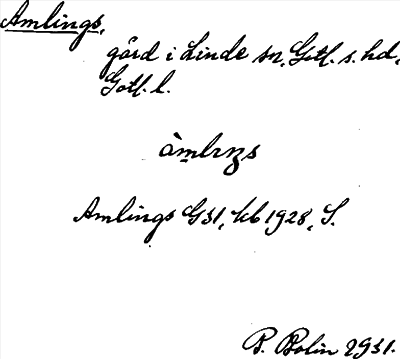 Amlings,
gård i Linde sn, Gotl. s. hd,
Gotl. l.
Amlings G31, kb 1928, S.
B. Bolin 1931.